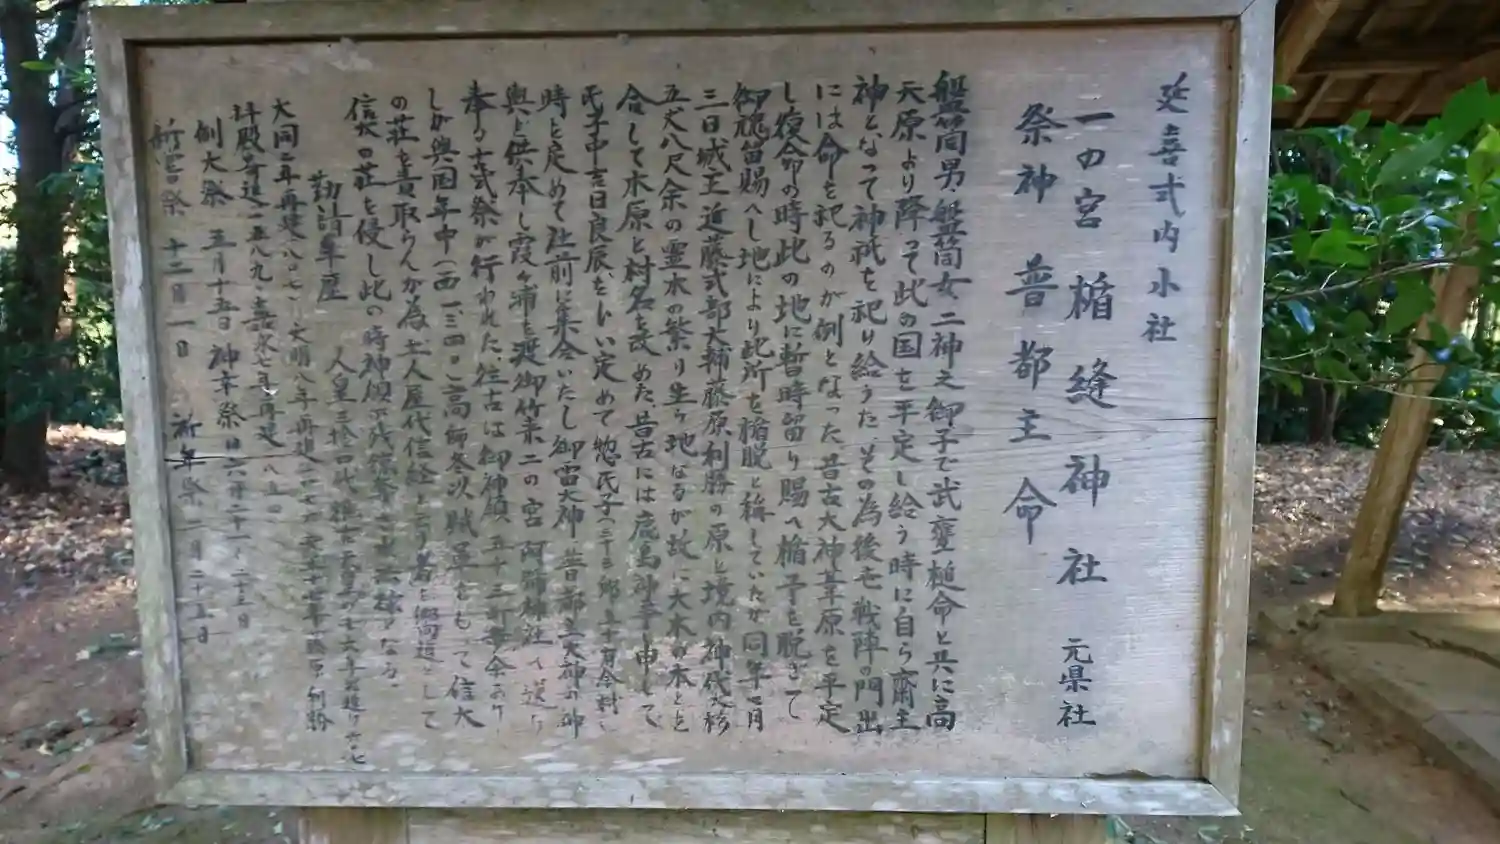 延喜式内小社
一の宮 楯縫神社 元県社
祭神 普都主命
盤筒男、盤筒女、二神之御子で武甕槌命と共に高
天原より降って此の国を平定し給う時に自ら齋主
神となって神祇を祀り給うた、その為後世戦陣の門出
には命を祀るのが例となった昔古大神葦原を平定
し復命の時此の地に暫時留り賜へ楯予を脱ぎて
御魂留賜へし地により此所を楯脱と稱していたが同年七月
三日城主近藤式部大輔藤原利勝の原と境内神代大杉
五丈八尺余の霊木の繁り生ケ地なるが故に大木の木とと
合して木原と村名を改めた昔古には鹿島神幸と申して
氏子中吉日良辰をトい定めて惣氏子
時を定めて社前に集合いたし御雷大神 普都主大神の御
輿と供奉し霞ヶ浦を渡御竹来二の宮阿彌神社へ
奉る古式祭が行われた往古は御神領五十三町歩余あり
しが興国年中(西一三四〇)高師冬以賊軍をもって信太
の荘を責取らんが為、土人屋代信経と云う者を郷導として
信太の荘を侵し此の時神領
勧請年歴 人皇三拾四代推古天皇の
大同二年再建八〇七、文明八年再建
拝殿再建一五八九、嘉永七年再建
例大祭 五月十五日 神幸祭
新嘗祭 十二月一日 祈年祭 二月二十五日